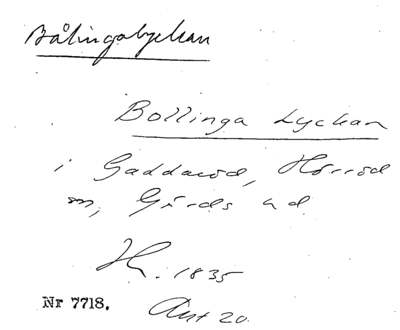 Bålingalyckan
Bollinga Lyckan
i Gaddaröd, Hörröd
sn, Gärds hd.
H. 1835
Nr 7718. Akt 20.